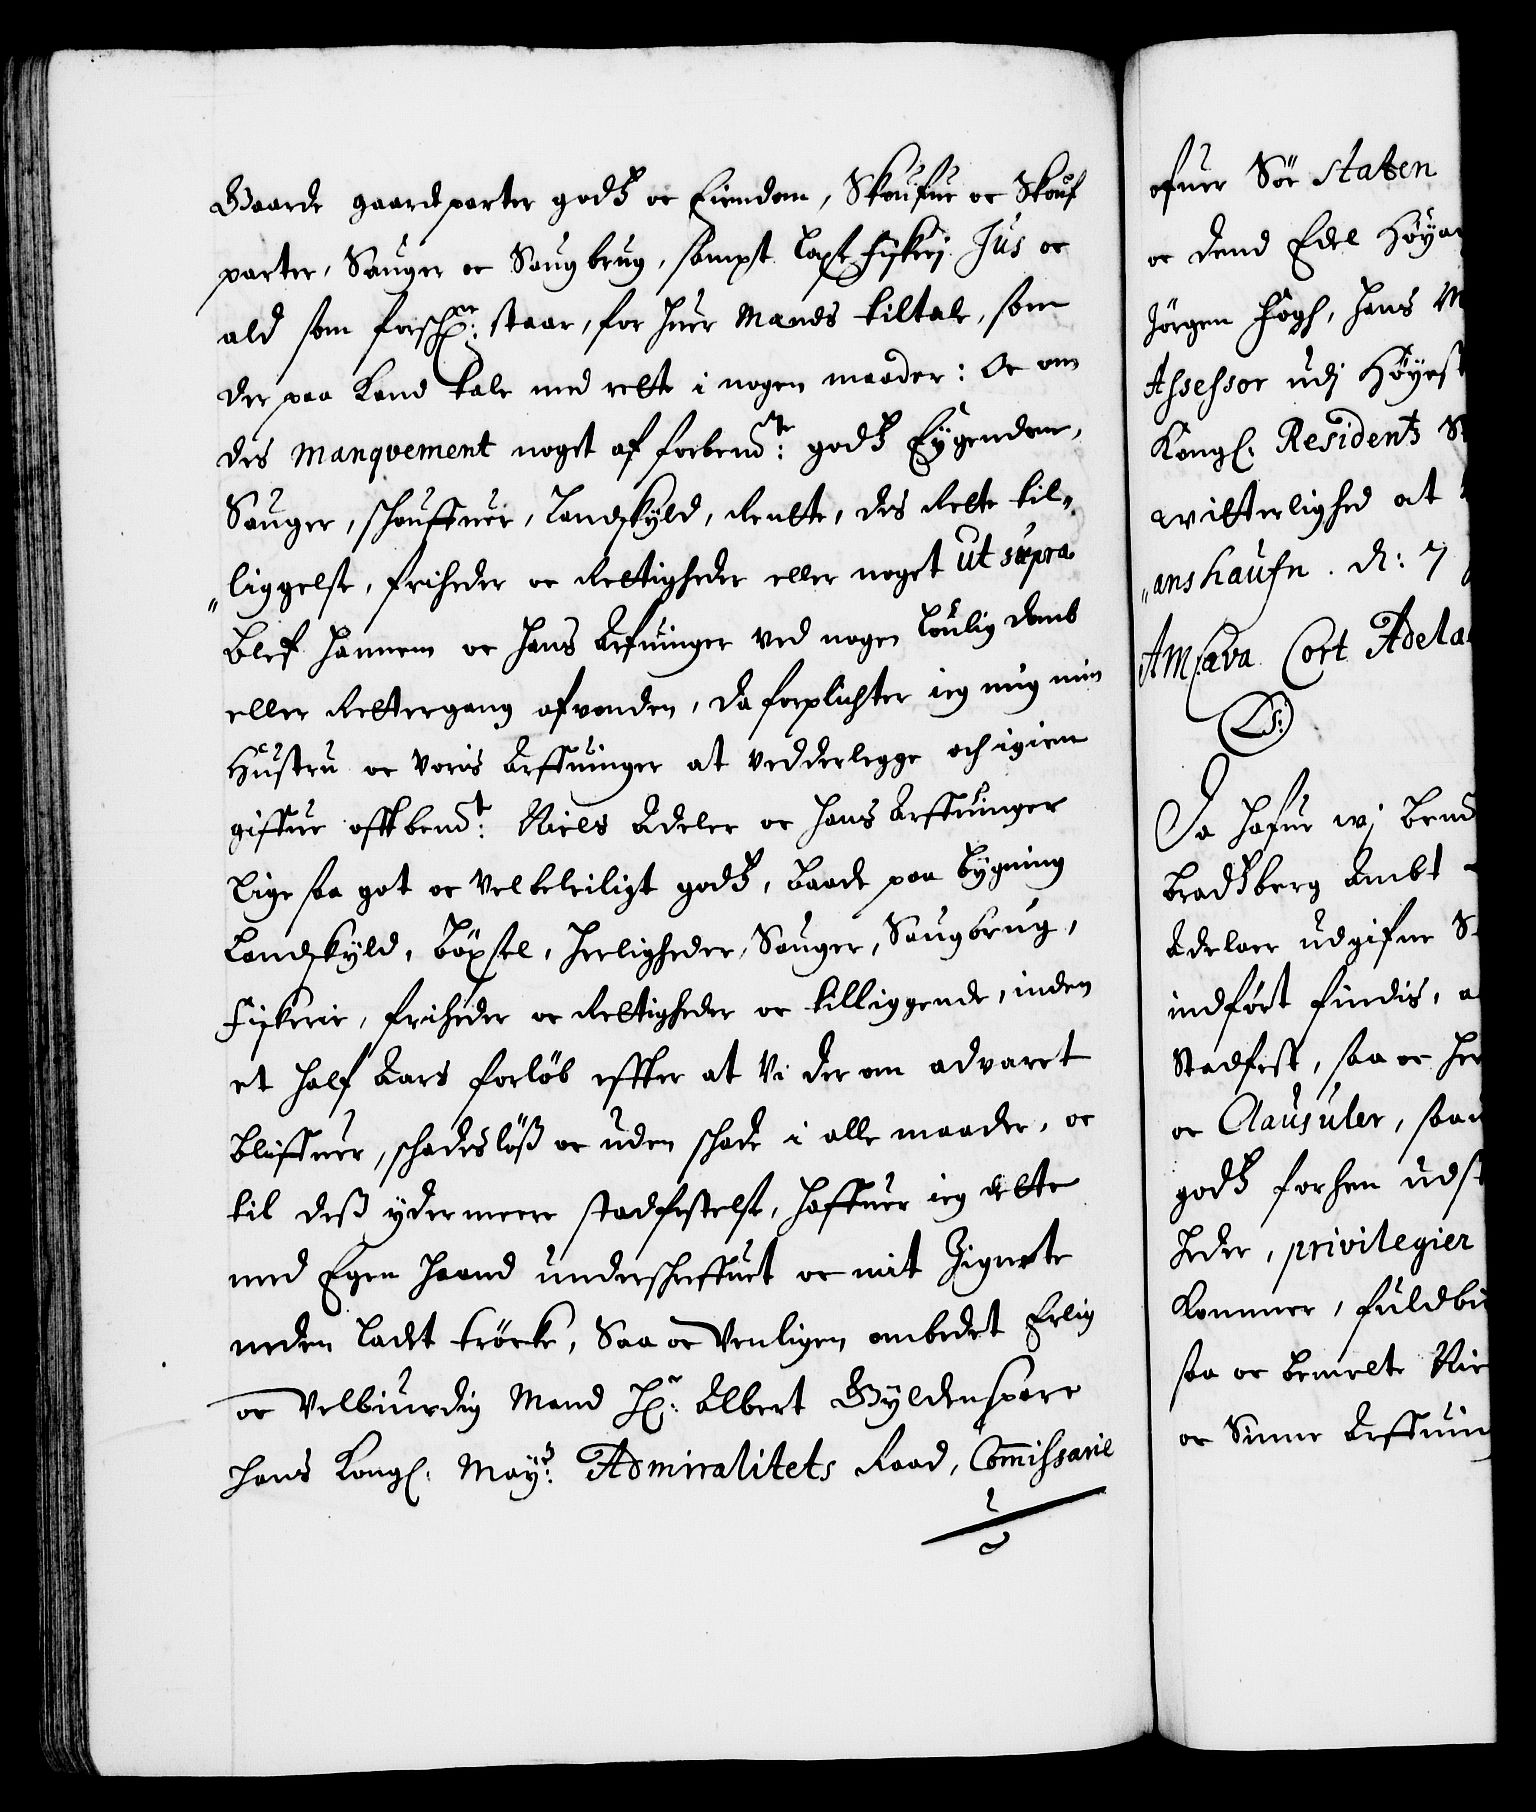 Gaarde gaardparter godtz oc Eiendom, Skoufue oc Skouf
parter, Sauger oc Saugbrug, sampt Laxe Fiskerj Jus oc
ald som forschr: staar, for huer Mands tiltale, som
der paa kand tale med rette i nogen maader: Oc om
des Manqvement noget af forbemte: godtz Eÿgendom,
Sauger, schouffuer, Landskyld, Rentte, des Rette til„
„liggelse, friheder oc Rettigheder eller noget ut supra
blef hannem oc hans Arfuinger ved nogen Loulig domb
eller Rettergang afvonden, da forplichter ieg mig min
Hustru oc voris Arffuinger at vedderlegge och igien
giffue offtbemt: Niels Adeler oc hans Arffuinger
lige saa got oc velbeleiligt godtz, baade paa bygning
Landskyld, böxsel, herligheder, Sauger, Saugbrug,
Fiskerie, friheder oc Rettigheder oc tilliggende, inden
et half Aars forlöb effter at Vi der om advaret
bliffuer, schadeslöß oc uden schade i alle maader, oc
til deß ÿdermeere stadfestelse, haffuer ieg dette
med Egen haand underschreffuet oc mit Zignete
neden ladet tröcke, Saa oc venligen ombedet Erlig
oc velbiurdig Mand Hr: Albert Gyldensparre
Hans Kongl: Mayts: Admiralitets Raad, Commissarie
ofuer Söe staten
oc dend Edel Höya
Jörgen Fogh, hans M
Assessor udj Höyest
Kongl: Residentz S
witterlighed at
„anshaufn. d: 7
AmCava Cort Adela
LS:
Da hafue wj bemt
bradtzberg Ambt
Adelaer udgifne S
indfört findis, a
Stadfest, saa oc her
oc Clausuler, saa
godtz forhen udst
heder, privilegier
kommer, fuldbu
saa oc bemelte Nie
oc Sinne Arffuin